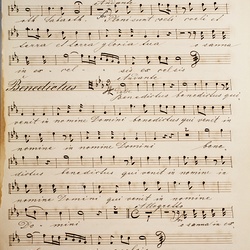 oth Sabaoth. Pleni sunt coeli coeli et
terra et terra gloria tua o sanna
in ex cel sis ex celsis
Andante
Benedictus
Benedictus benedictus qui
venit in nomine Domini benedictus qui venit in
nomine in nomine Domini bene
dictus benedictus qui venit in nomine in
nomine Domini benedictus qui venit in nomine
Allegretto
Do mini o sanna in ex